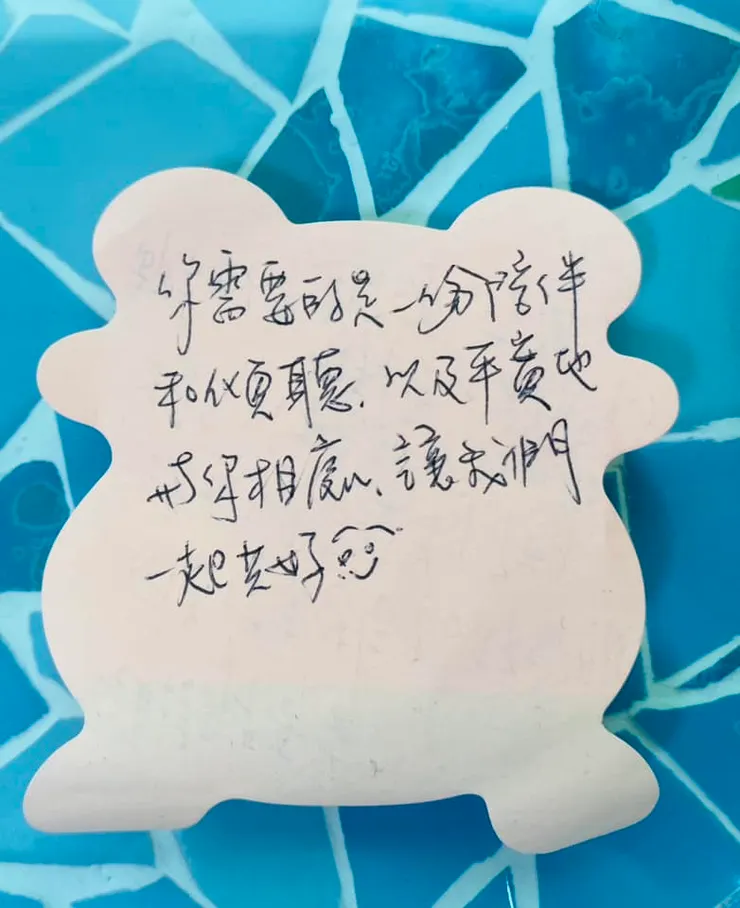 你需要的是一份陪伴
和傾聽、以及平實地
与你相處、讓我們
一起共好